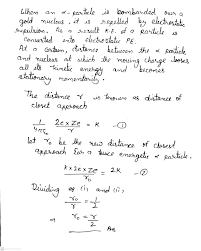 When an α-particle is bombarded over a
gold nucleus, it is repelled by electrostatic
repulsion. As a result K.E. of α particle is
converted into electrostatic PE.
At a certain, distance between the α particle
and nucleus at which the moving charge losses
all its kinetic energy and becomes
stationary momentarily.
The distance r is known as distance of
closest approach
1/4πε₀ 2e×Ze/r = K —①
Let r₀ be the new distance of closest
approach for a twice energetic α particle.
k×2e×Ze/r₀ = 2K —②
Dividing eq (i) and (ii)
r₀/r = 1/2
⇒ r₀ = r/2 Ans